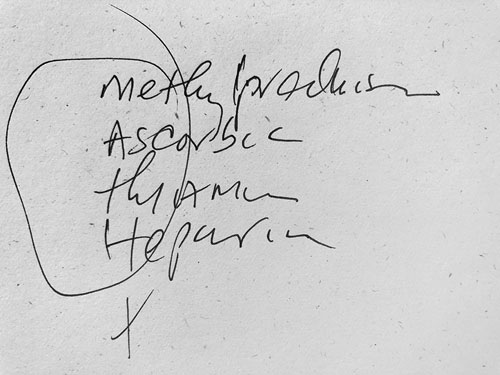 Methylprednison
Ascorbic
thiAMin
Heparin
+